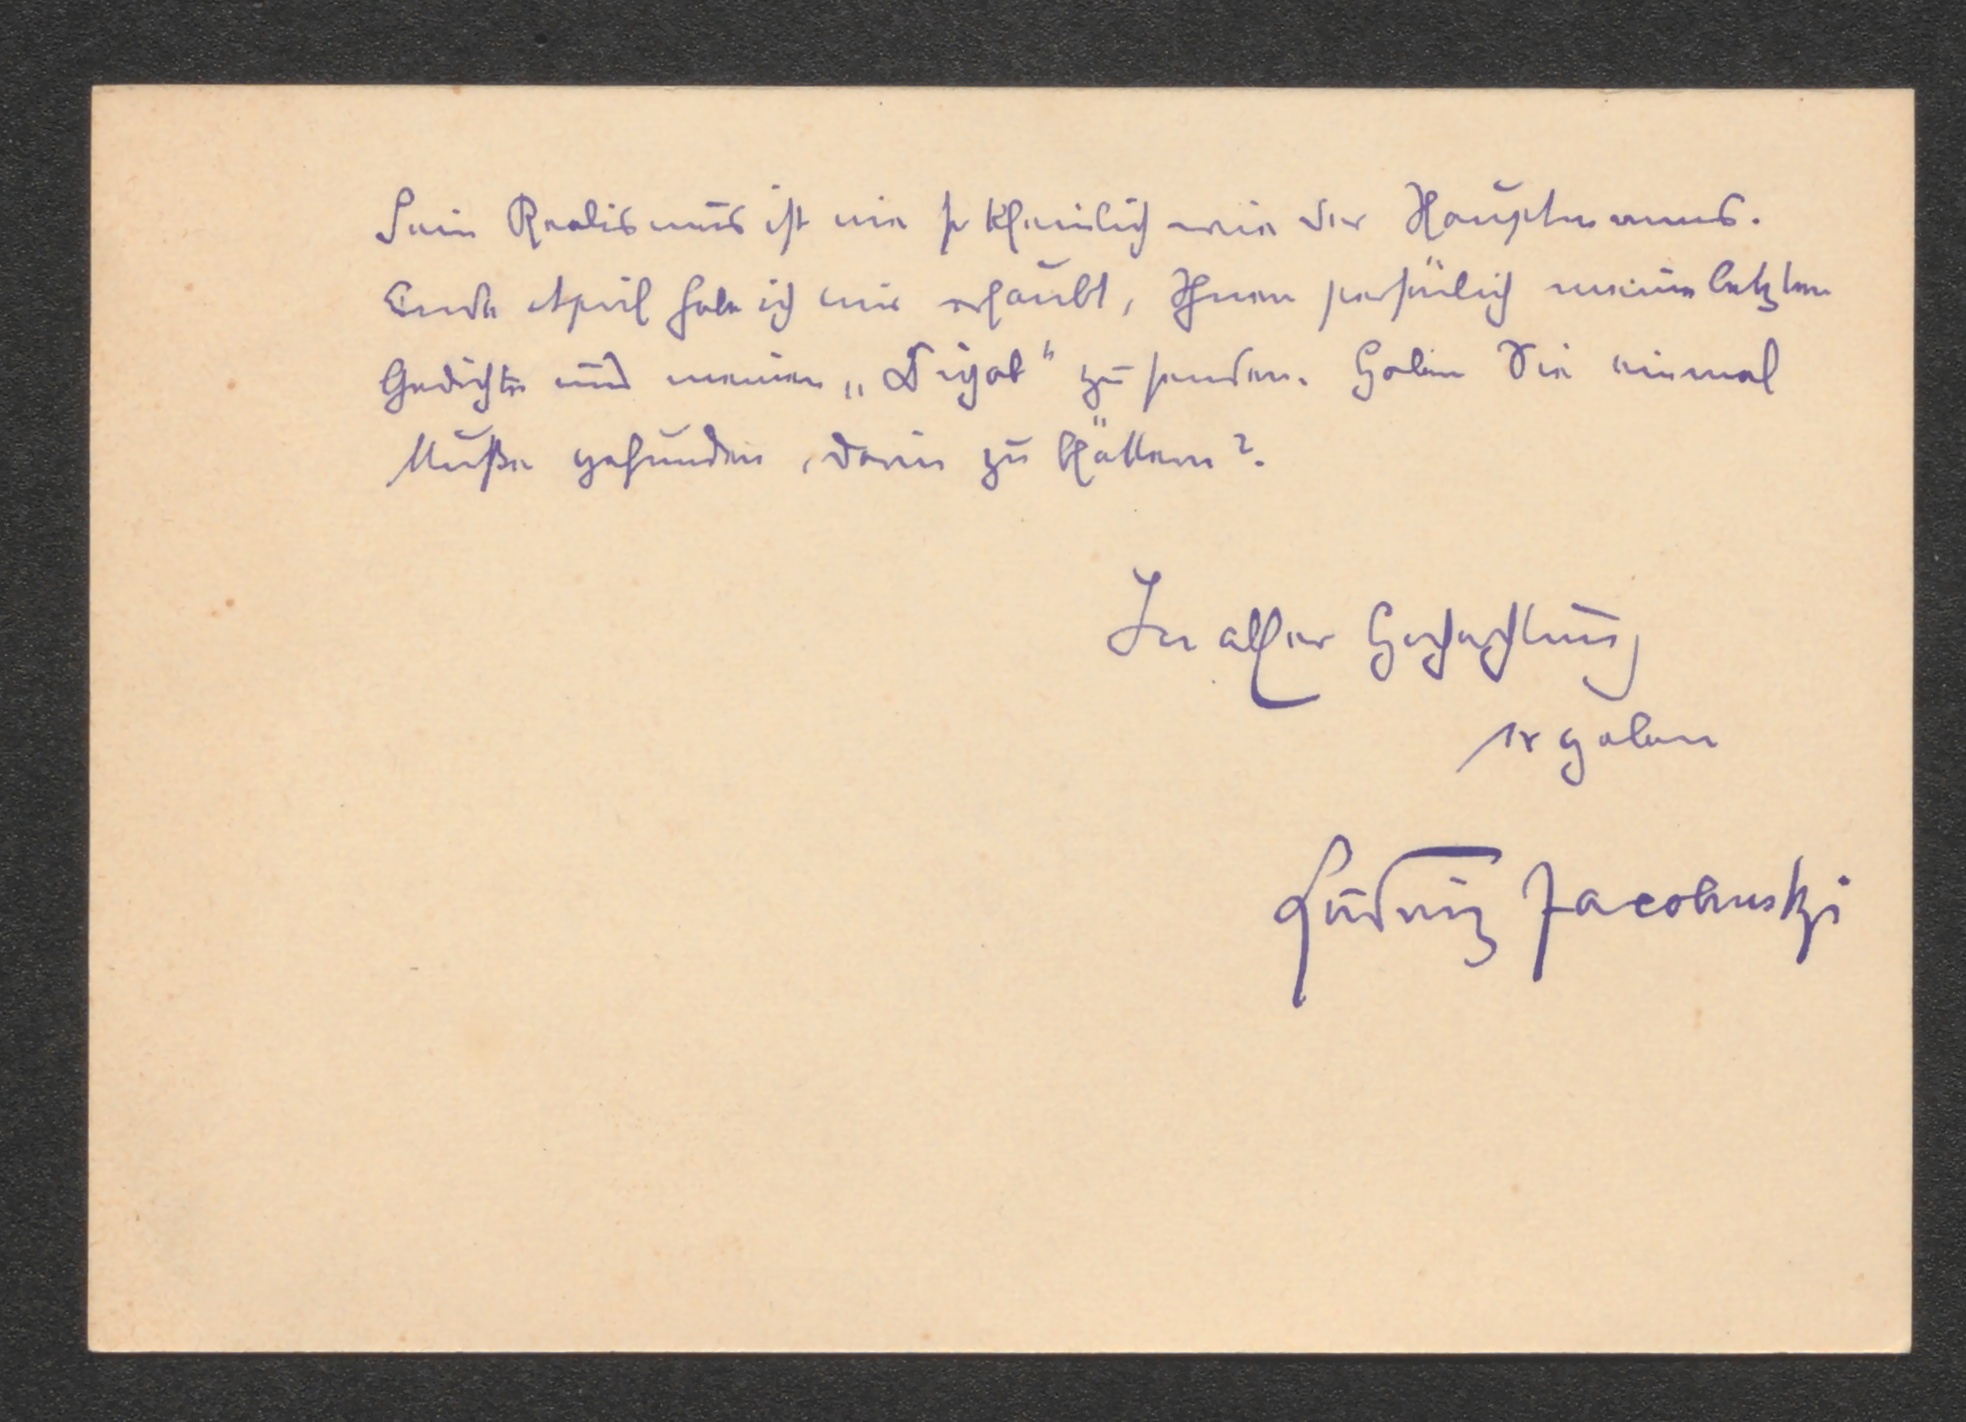 Sein Realismus ist nie so kleinlich wie der Hauptmanns.
Ende April habe ich mir erlaubt, Ihnen persönlich meine letzten
Gedichte und meinen „Diyab“ zu senden. Haben Sie einmal
Muße gefunden, darin zu blättern?
In aller Hochachtung
ergeben
Ludwig Jacobowski